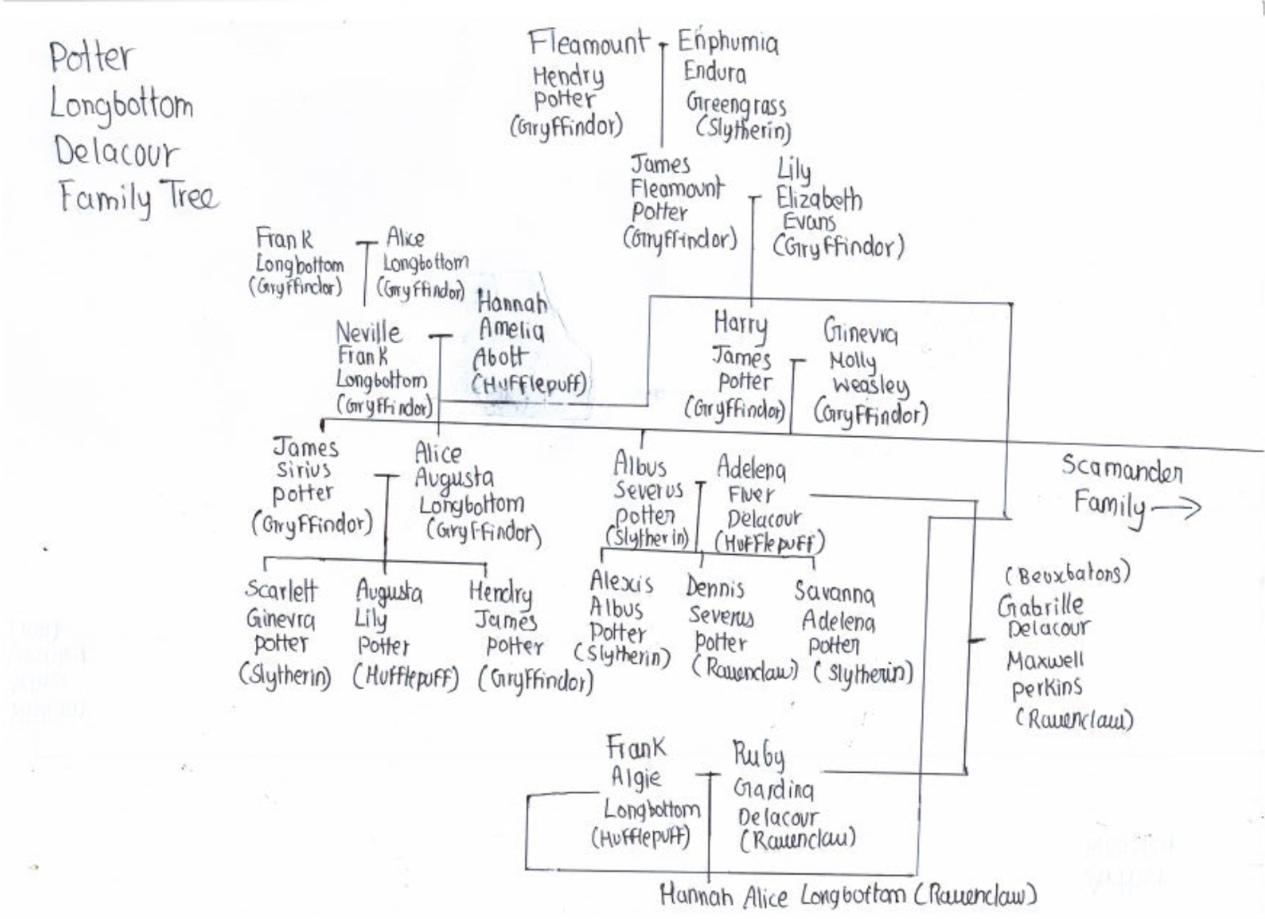 Potter
Longbottom
Delacour
Family Tree
Fleamount
Hendry
Potter
(Gryffindor)
Enphumia
Endura
Greengrass
(Slytherin)
James
Fleamount
Potter
(Gryffindor)
Lily
Elizabeth
Evans
(Gryffindor)
Frank
Longbottom
(Gryffindor)
Alice
Longbottom
(Gryffindor)
Neville
Frank
Longbottom
(Gryffindor)
Hannah
Amelia
Abott
(Hufflepuff)
Harry
James
Potter
(Gryffindor)
Ginevra
Molly
Weasley
(Gryffindor)
James
Sirius
Potter
(Gryffindor)
Alice
Augusta
Longbottom
(Gryffindor)
Albus
Severus
Potter
(Slytherin)
Adelena
Fluer
Delacour
(Hufflepuff)
Scamander
Family →
Scarlett
Ginevra
Potter
(Slytherin)
Augusta
Lily
Potter
(Hufflepuff)
Hendry
James
Potter
(Gryffindor)
Alexis
Albus
Potter
(Slytherin)
Dennis
Severus
Potter
(Ravenclaw)
Savanna
Adelena
Potter
(Slytherin)
(Beuxbatons)
Gabrille
Delacour
Maxwell
Perkins
(Ravenclaw)
Frank
Algie
Longbottom
(Hufflepuff)
Ruby
Gardina
Delacour
(Ravenclaw)
Hannah Alice Longbottom (Ravenclaw)